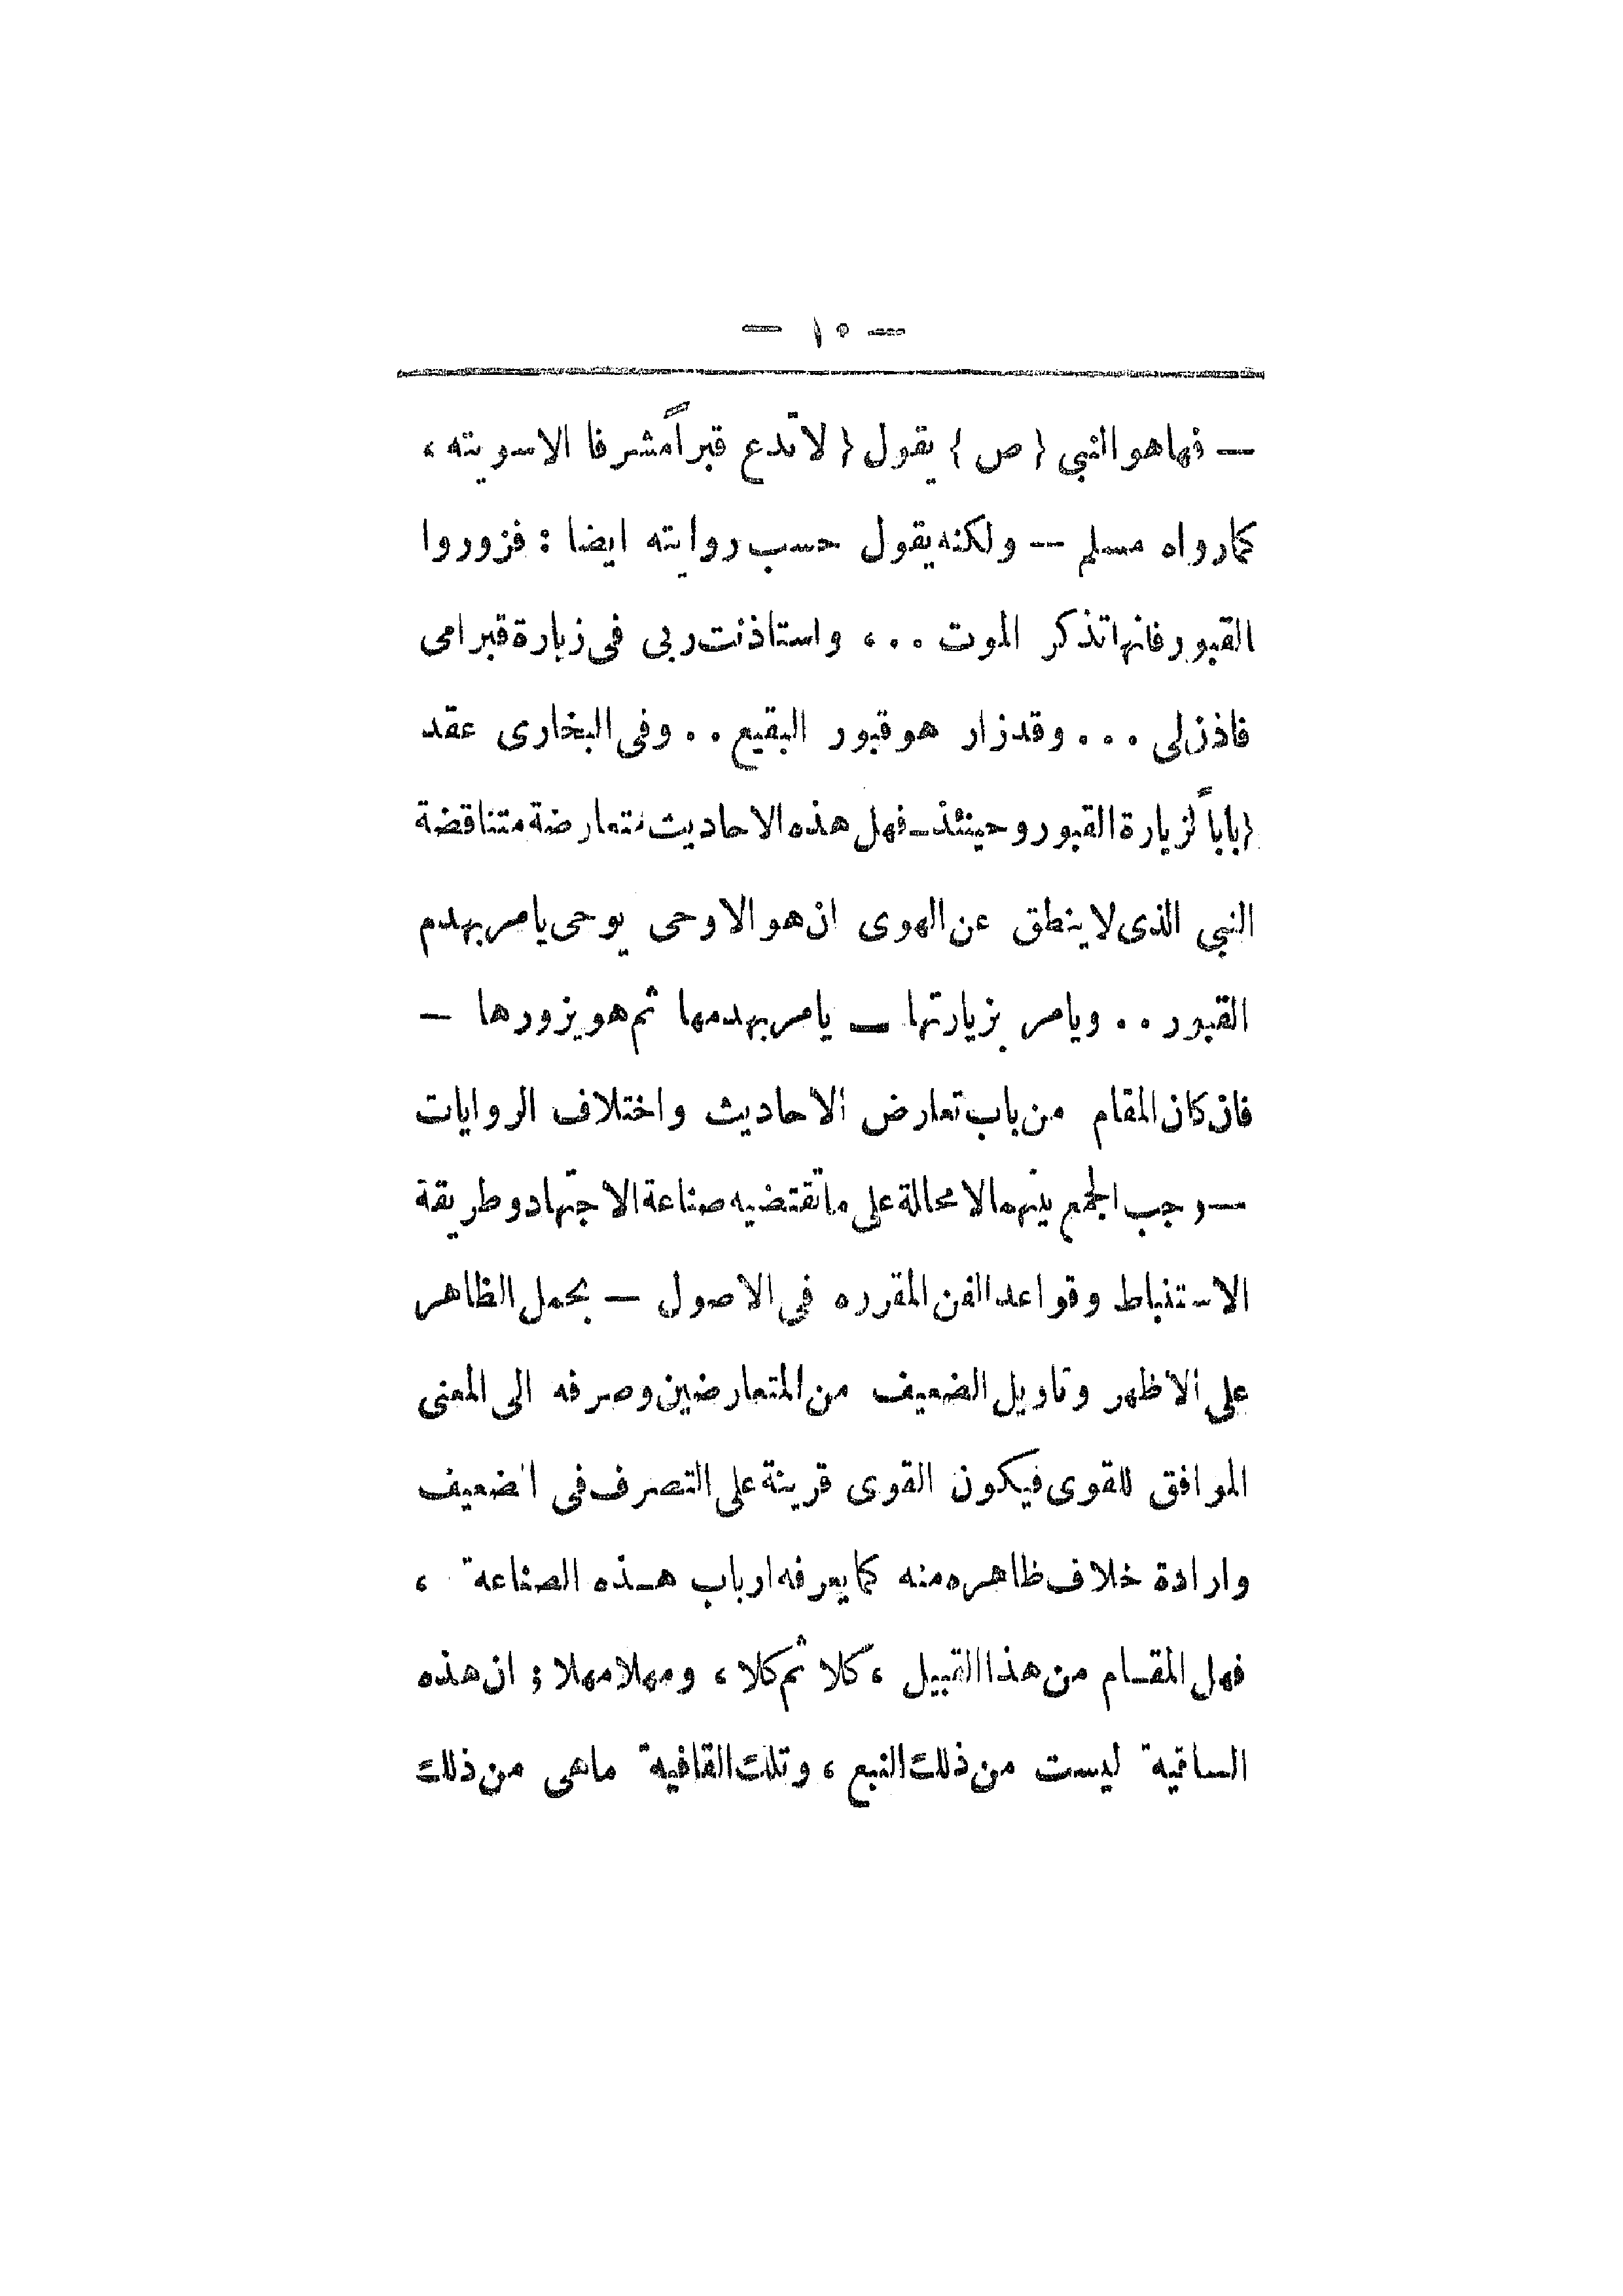 — ١٠ —
— فهاهو النبي { ص } يقول { لا تدع قبراً مشرفا الا سويته ،
كمارواه مسلم — ولكنه يقول حسب روايته ايضا : فزوروا
القبور فانها تذكر الموت . . ، واستاذنت ربى فى زيارة قبر امى
فاذن لى . . . وقد زار هو قبور البقيع . . وفى البخارى عقد
{ باباً لزيارة القبور وحينئذ ـ فهل هذه الاحاديث متعارضة متناقضة
النبي الذى لا ينطق عن الهوى ان هو الا وحى يوحى يامر بهدم
القبور . . ويامر بزيارتها ـ يامر بهدمها ثم هو يزورها —
فان كان المقام من باب تعارض الاحاديث واختلاف الروايات
— وجب الجمع بينهما لا محالة على ما تقتضيه صناعة الاجتهاد وطريقة
الاستنباط وقواعد الفن المقرره فى الاصول — بحمل الظاهر
على الاظهر وتاويل الضعيف من المتعارضين وصرفه الى المعنى
الموافق للقوى فيكون القوى قرينة على التصرف فى الضعيف
وارادة خلاف ظاهره منه كما يعرفه ارباب هـذه الصناعة ،
فهل المقـام من هذا القبيل ، كلا ثم كلا ، ومهلا مهلا ؛ ان هذه
الساقية ليست من ذلك النبع ، وتلك القافية ماهى من ذلك